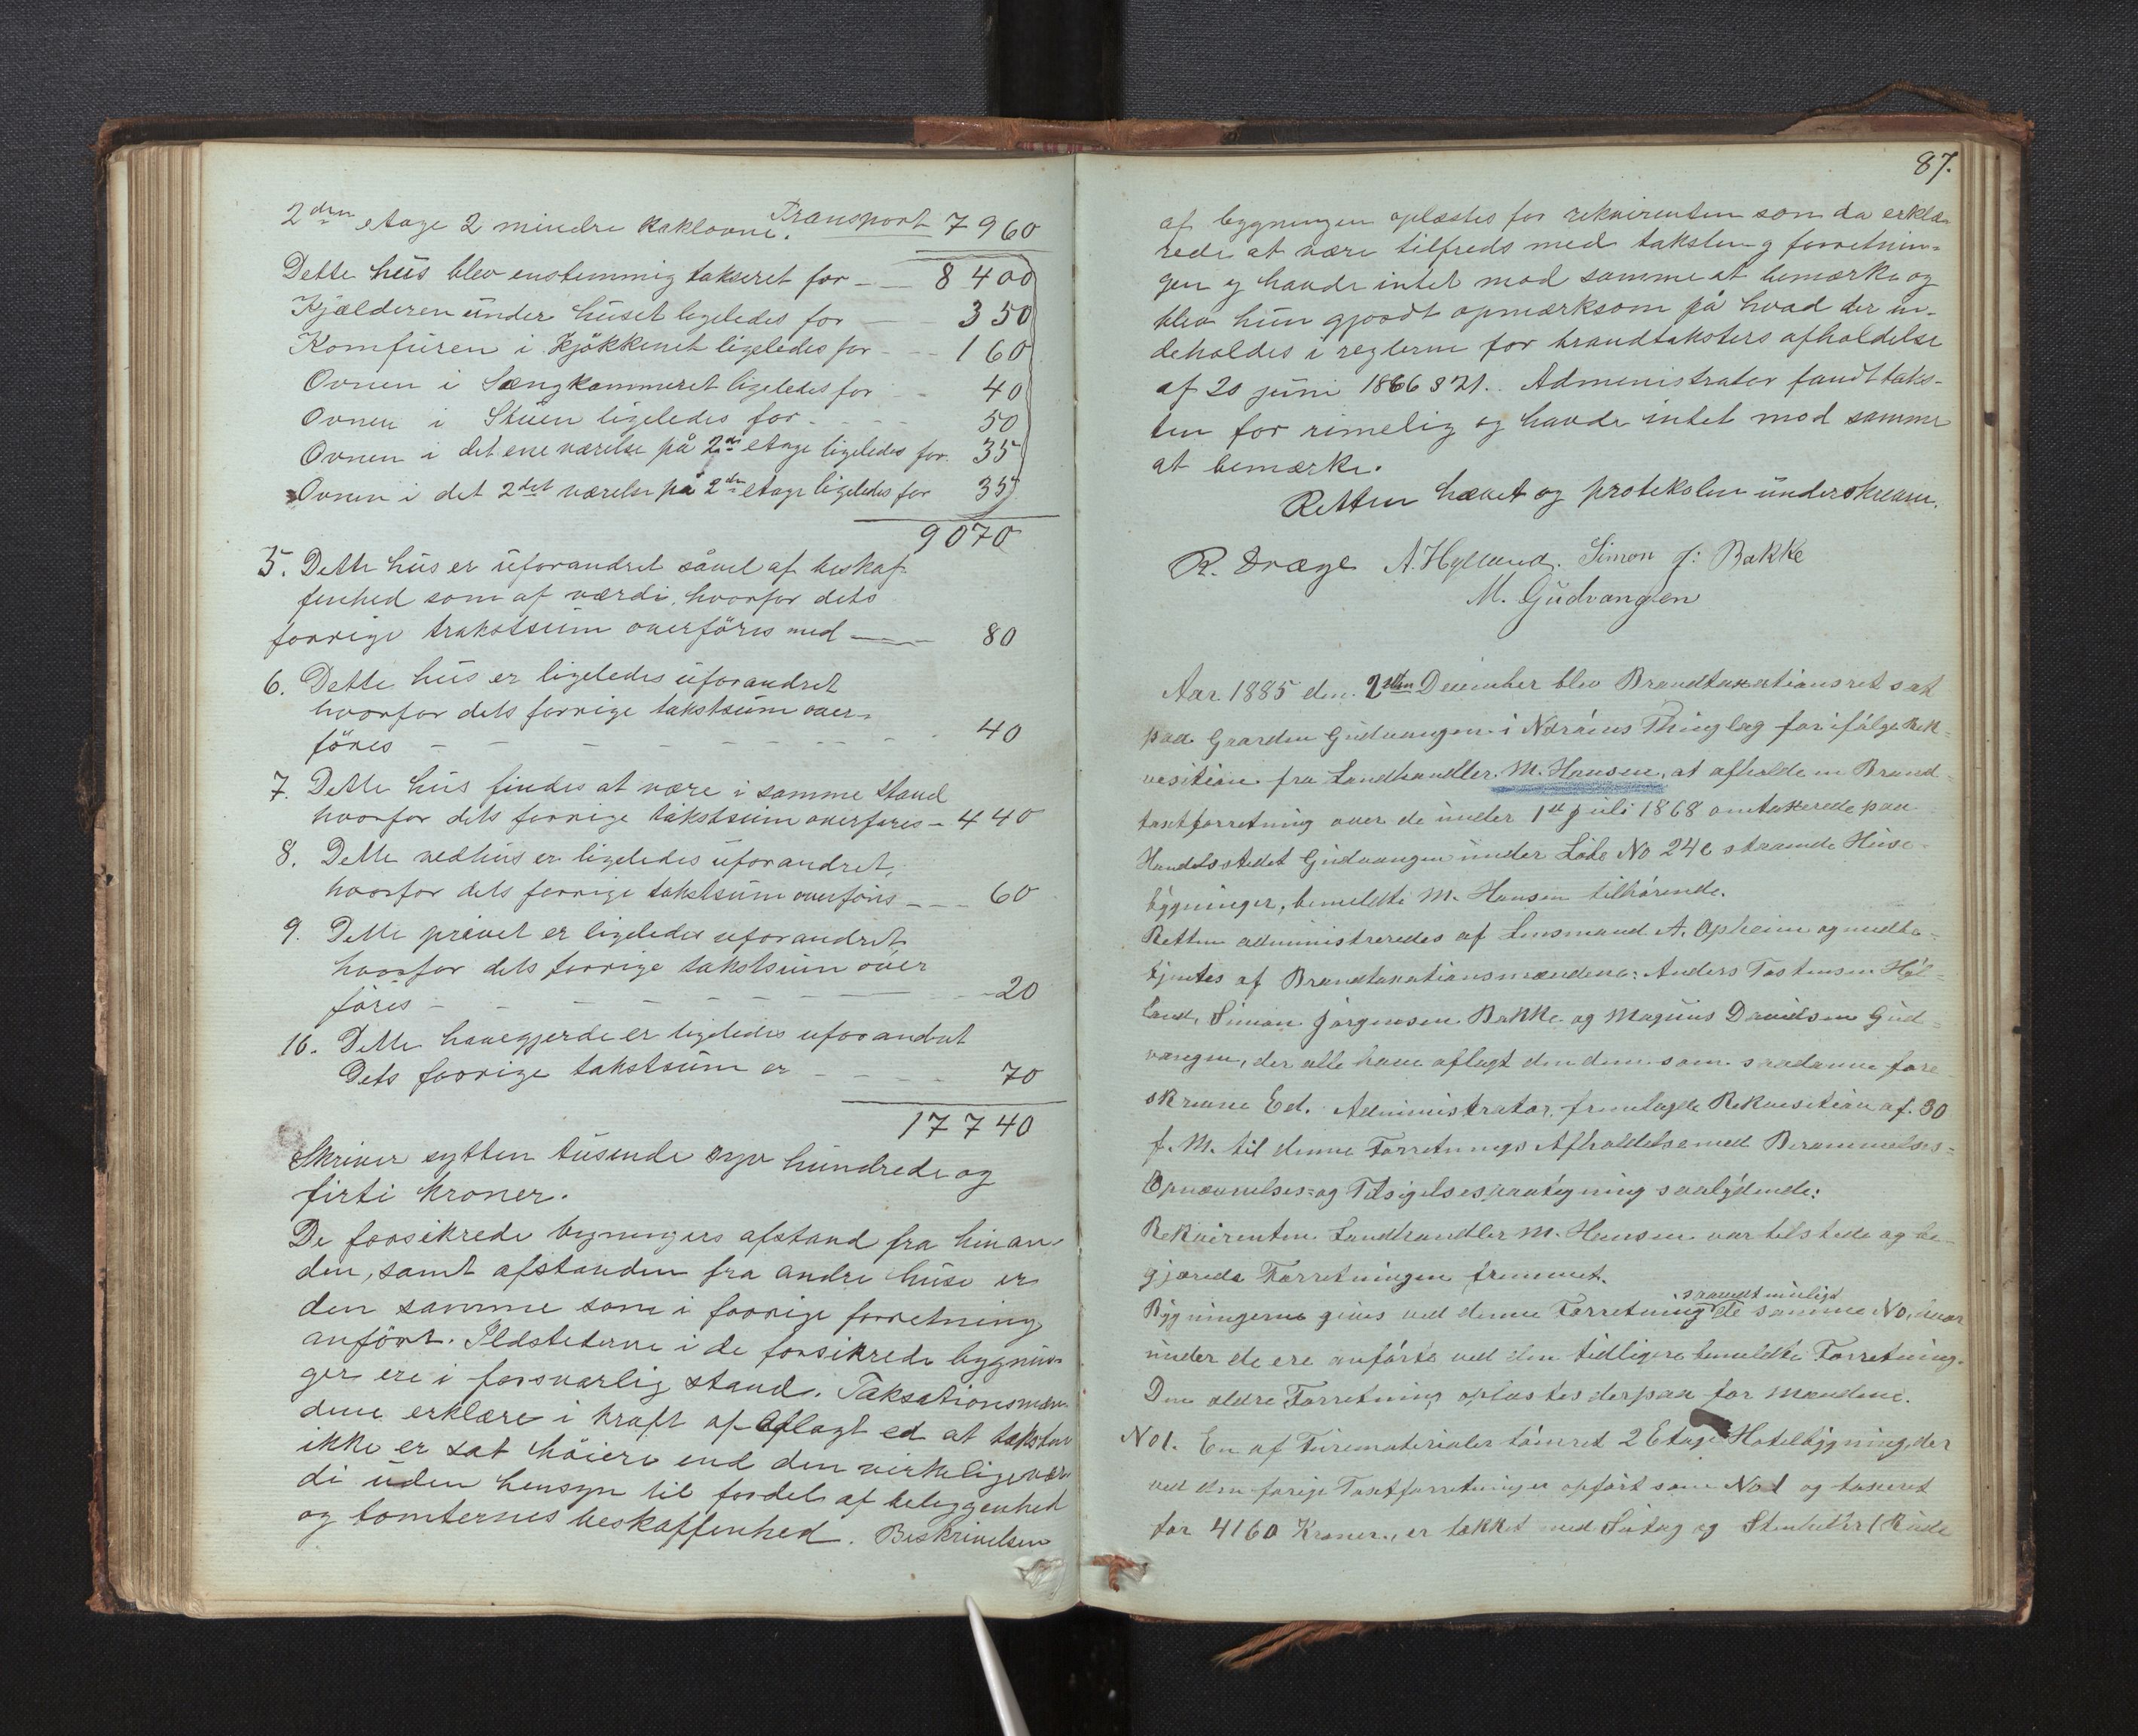 2den etage 2 mindre kaklovne. Transport 7960
Dette hus blev enstemmig takseret for - - 8400
Kjælderen under huset ligeledes for - - 350
Komfuren i Kjøkkenet ligeledes for - - 160
Ovnen i Sængkammeret ligeledes for - - 40
Ovnen i Stuen ligeledes for - - - - 50
Ovnen i det ene værelse på 2de etage ligeledes for. 35
Ovnen i det 2det værelse på 2de etage ligeledes for 35
9070
5. Dette hus er uforandret såvel af beskaf-
fenhed som af værdi, hvorfor dets
forrige trakstsum overföres med — 80
6. Dette hus er ligeledes uforandret
hvorfor dets forrige takstsum over-
föres - - - - - - - - - 40
7. Dette hus findes at være i samme stand
hvorfor dets forrige takstsum overføres - 440
8. Dette vedhus er ligeledes uforandret,
hvorfor dets forrige takstsum overføris - - - 60
9. Dette privet er ligeledes uforandret
hvorfor dets forrige takstsum over
föres - - - - - - - - 20
10. Dette havegjerde er ligeledes uforandret
Dets forrige takstsum er - - - - - 70
17740
Skriver sytten tusende syv hundrede og
firti kroner.
De forsikrede bygningers afstand fra hinan-
den, samt afstanden fra andre huse er
den samme som i forrige forretning
anfört. Ildstederne i de forsikrede bygnin-
ger ere i forsvarlig stand. Taksationsmæn-
dene erklære i kraft af aflagt ed at taksten
ikke er sat höiere end den virkelige vær-
di uden hensyn til fordel af beliggenhed
og tomternes beskaffenhed. Beskrivelsen
87.
af bygningen oplæstes for rekvirenten som da erklæ-
rede at være tilfreds med taksten og forretnin-
gen og havde intet mod samme at bemærke og
blev hun gjordt opmærksom på hvad der in-
deholdes i reglerne for brandtaksters afholdelse
af 20 juni 1866 § 21. Administrator fandt taks-
ten for rimelig og havde intet mod samme
at bemærke.
Retten hævet og protokolen underskreven.
R. Dræge A. Hylland. Simon J: Bakke
M. Gudvangen
Aar 1885 den 2den December blev Brandtaxationsret sat
paa Gaarden Gudvangen i Nærøens Thinglag for ifølge Rek-
visition fra Landhandler M. Hansen, at afholde en Brand-
taxtforretning over de under 1st Juli 1868 omtaxerede paa
Handelsstedet Gudvangen under Löbe No 24c staaende Huse-
bygninger, bemeldte M. Hansen tilhörende.
Retten administreredes af Lensmand A. Opheim og medbe-
tjentes af Brandtaxationsmændene: Anders Tostensen Høl-
land, Simon Jørgensen Bakke og Magnus Davidsen Gud-
vangen, der alle have aflagt den dem som saadanne fore-
skrevne Ed. Administrator fremlagde Rekvisition af 30
f. M. til denne Forretnings Afholdelse med Berammelses-
Opnævnelses- og Tilsigelsespaategning saalydende:
Rekvirenten Landhandler M. Hansen var tilstede og be-
gjærede Forretningen fremmet.
Bygningerne gives ved denne Forretning saavidt muligt de samme No, hvor
under de ere anførte ved den tidligere bemeldte Forretning.
Den ældre Forretning oplæstes derpaa for Mændene.
No 1. En af Furematerialer tømret 2 Etages Hotelbygning, der
ved den forige Taxtforretning er opført som No 1 og taxeret
for 4160 Kroner, er tækket med Sutag og Stenheller